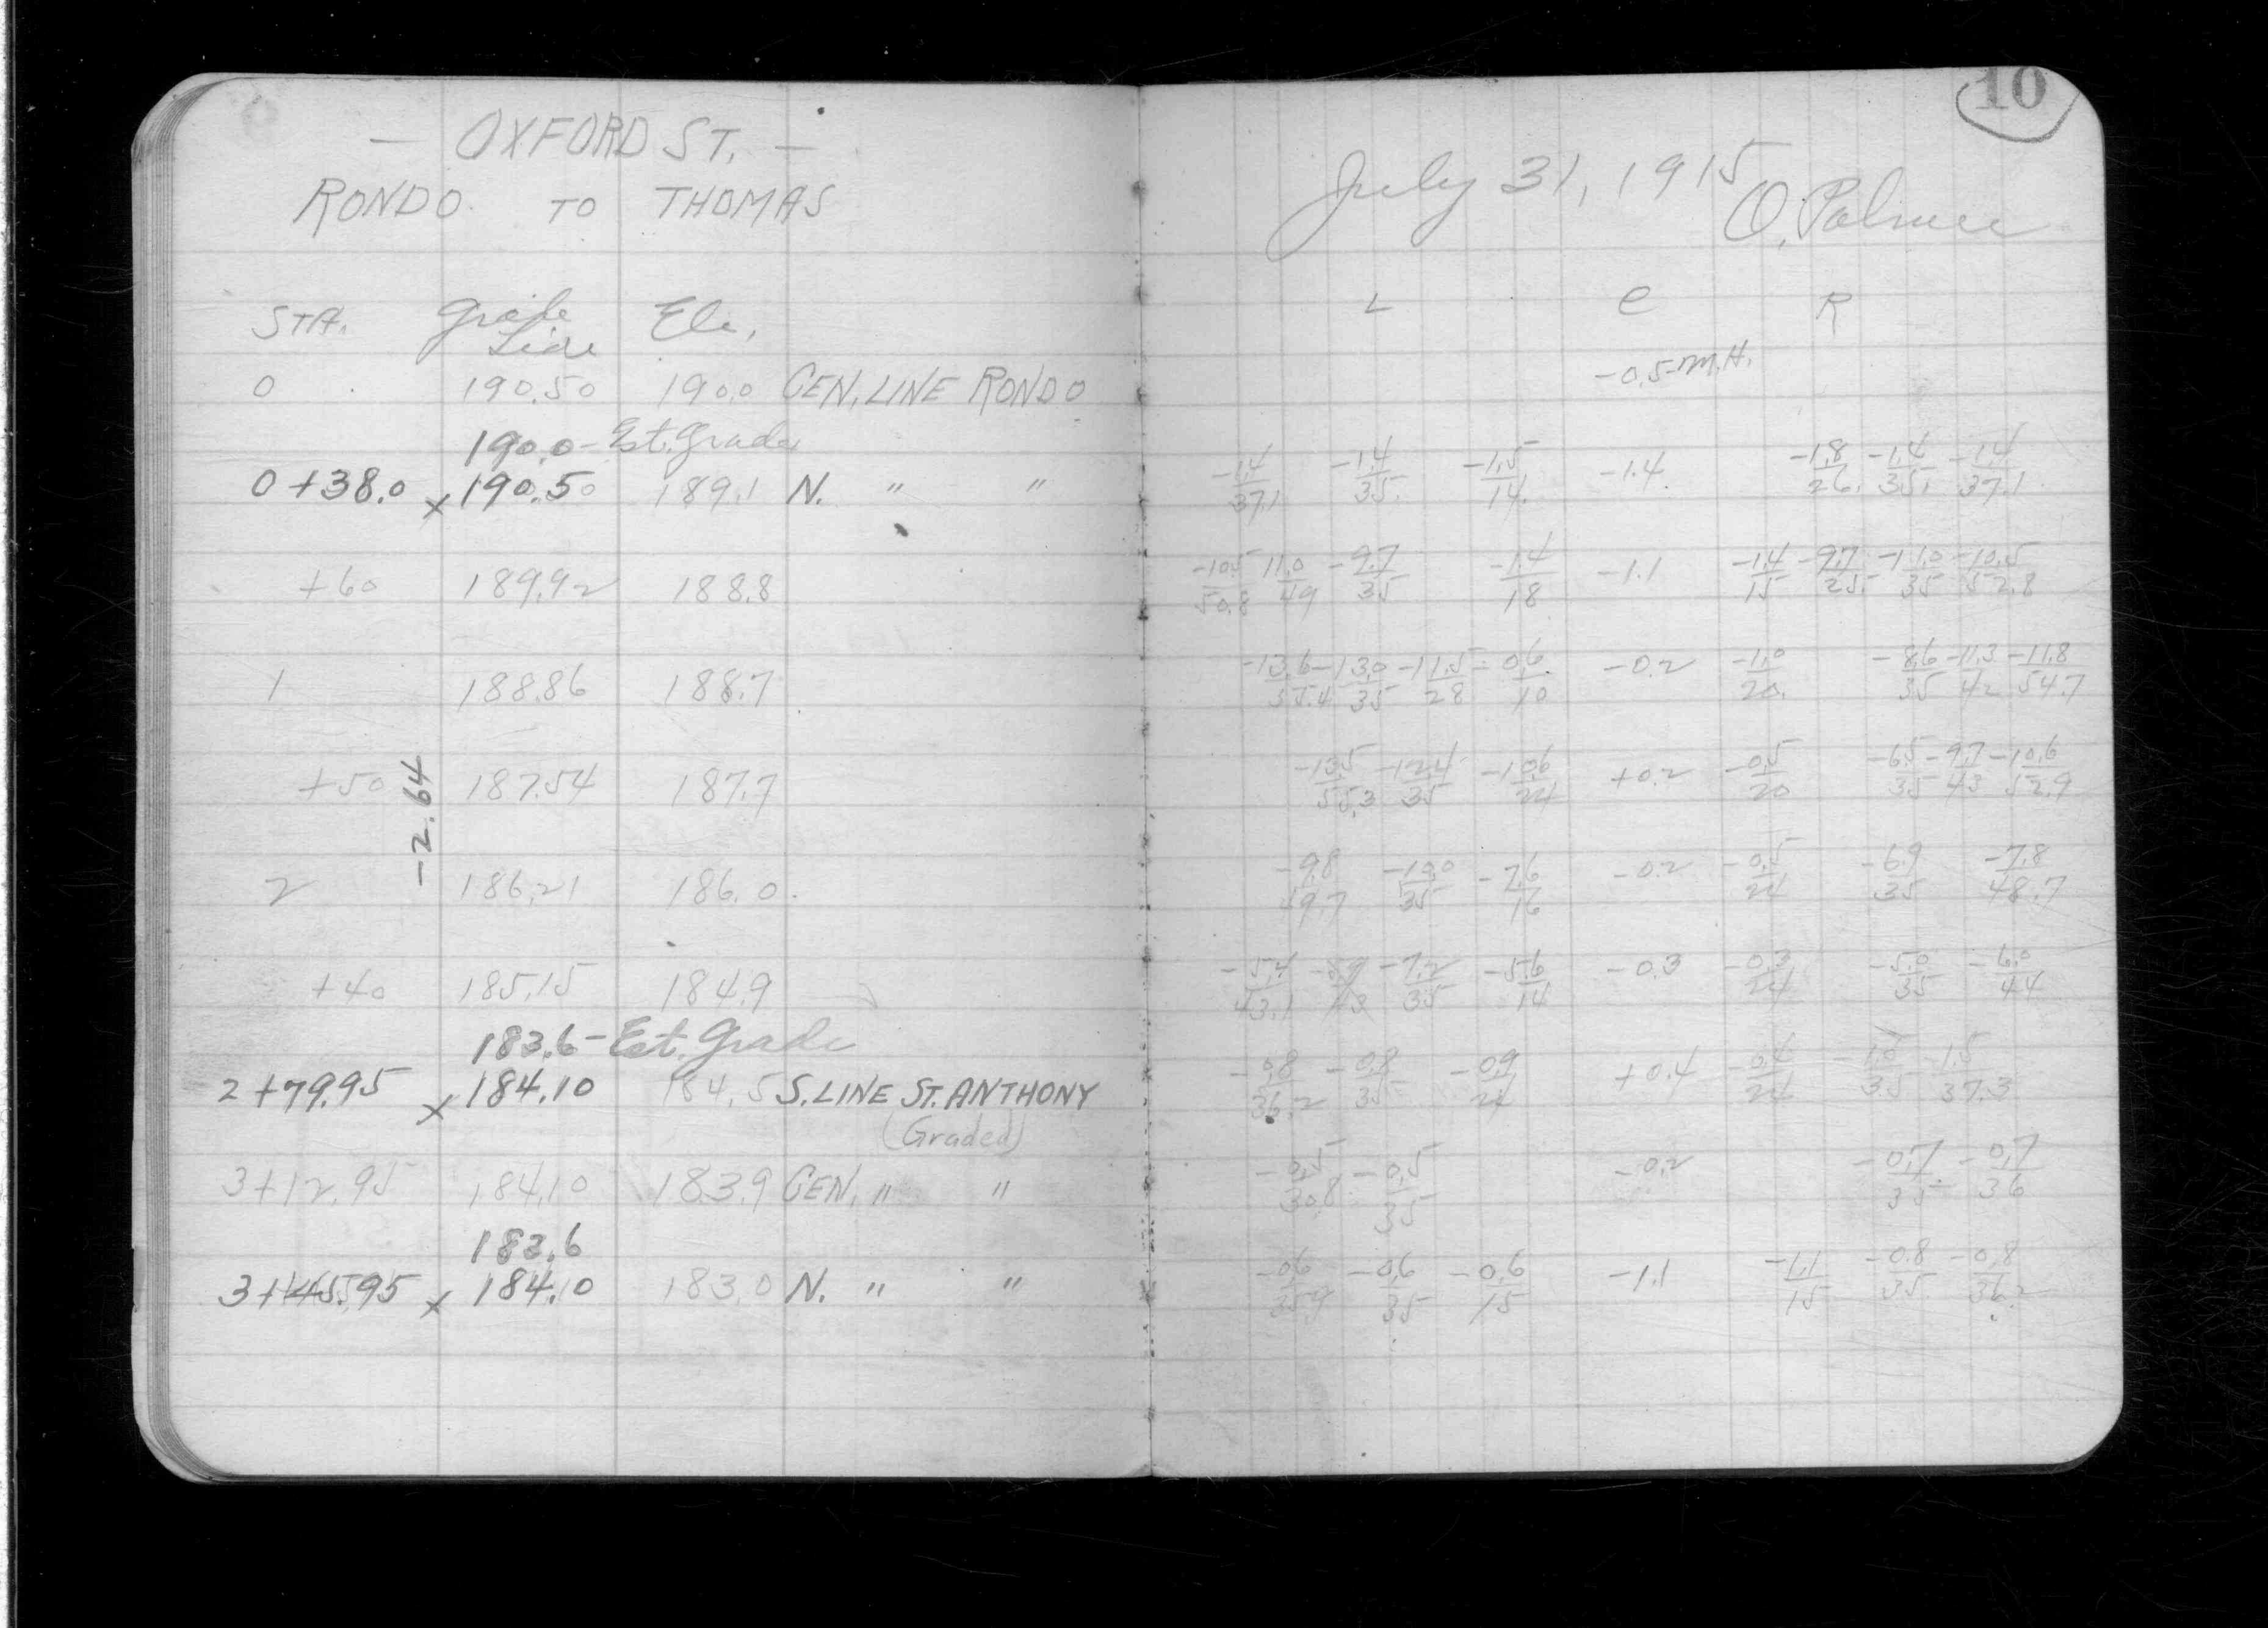 — OXFORD ST. —
RONDO TO THOMAS
STA. Grade Line Ele.
0 190.50 190.0 CEN. LINE RONDO
190.0 - Est. Grade
0+38.0 x 190.50 189.1 N. " "
+60 189.92 188.8
1 188.86 188.7
+50 187.54 187.7
-2.64
2 186.21 186.0
+40 185.15 184.9
183.6 - Est. Grade
2+79.95 x 184.10 184.5 S. LINE ST. ANTHONY
(Graded)
3+12.95 184.10 183.9 CEN. " "
183.6
3+45.95 x 184.10 183.0 N. " "
10
July 31, 1915 O. Palmer
L C R
-0.5 M.H.
-1.4/37.1 -1.4/35. -1.5/14. -1.4. -1.8/26. -1.4/35. -1.4/37.1
-10.5/50.8 11.0/49 -9.7/35 -1.4/18 -1.1 -1.4/15 -9.7/25. -11.0/35 -10.5/52.8
-13.6/55.4 -13.0/35 -11.5/28 -0.6/10 -0.2 -1.0/20. -8.6/35 -11.3/42 -11.8/54.7
-13.5/55.3 -12.4/35 -10.6/24 +0.2 -0.5/20 -6.5/35 -9.7/43 -10.6/52.9
-9.8/49.7 -10.0/35 -7.6/16 -0.2 -0.5/24 -6.9/35 -7.8/48.7
-5.4/43.1 -7.2/35 -5.6/14 -0.3 -0.3/24 -5.0/35 -6.0/44
-0.8/36.2 -0.8/35 -0.9/24 +0.4 -0.4/24 -1.0/35 -1.5/37.3
-0.5/30.8 -0.5/35 -0.2 -0.7/35 -0.7/36
-0.6/35.9 -0.6/35 -0.6/15 -1.1 -1.1/15 -0.8/35 -0.8/36.2